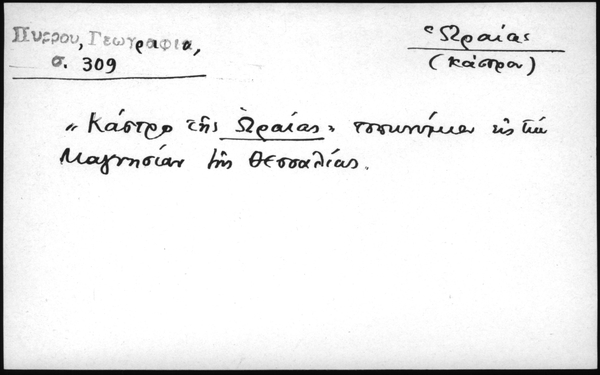 Πύρρου, Γεωγραφία,
σ. 309
Ὡραίας
(κάστρον)
"Κάστρο τῆς Ὡραίας" τοπωνύμιον εἰς τὴν
Μαγνησίαν τῆς Θεσσαλίας.